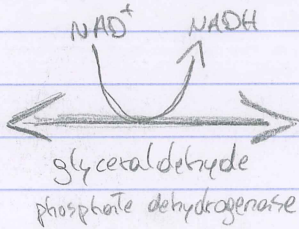 NAD+ NADH
glyceraldehyde
phosphate dehydrogenase